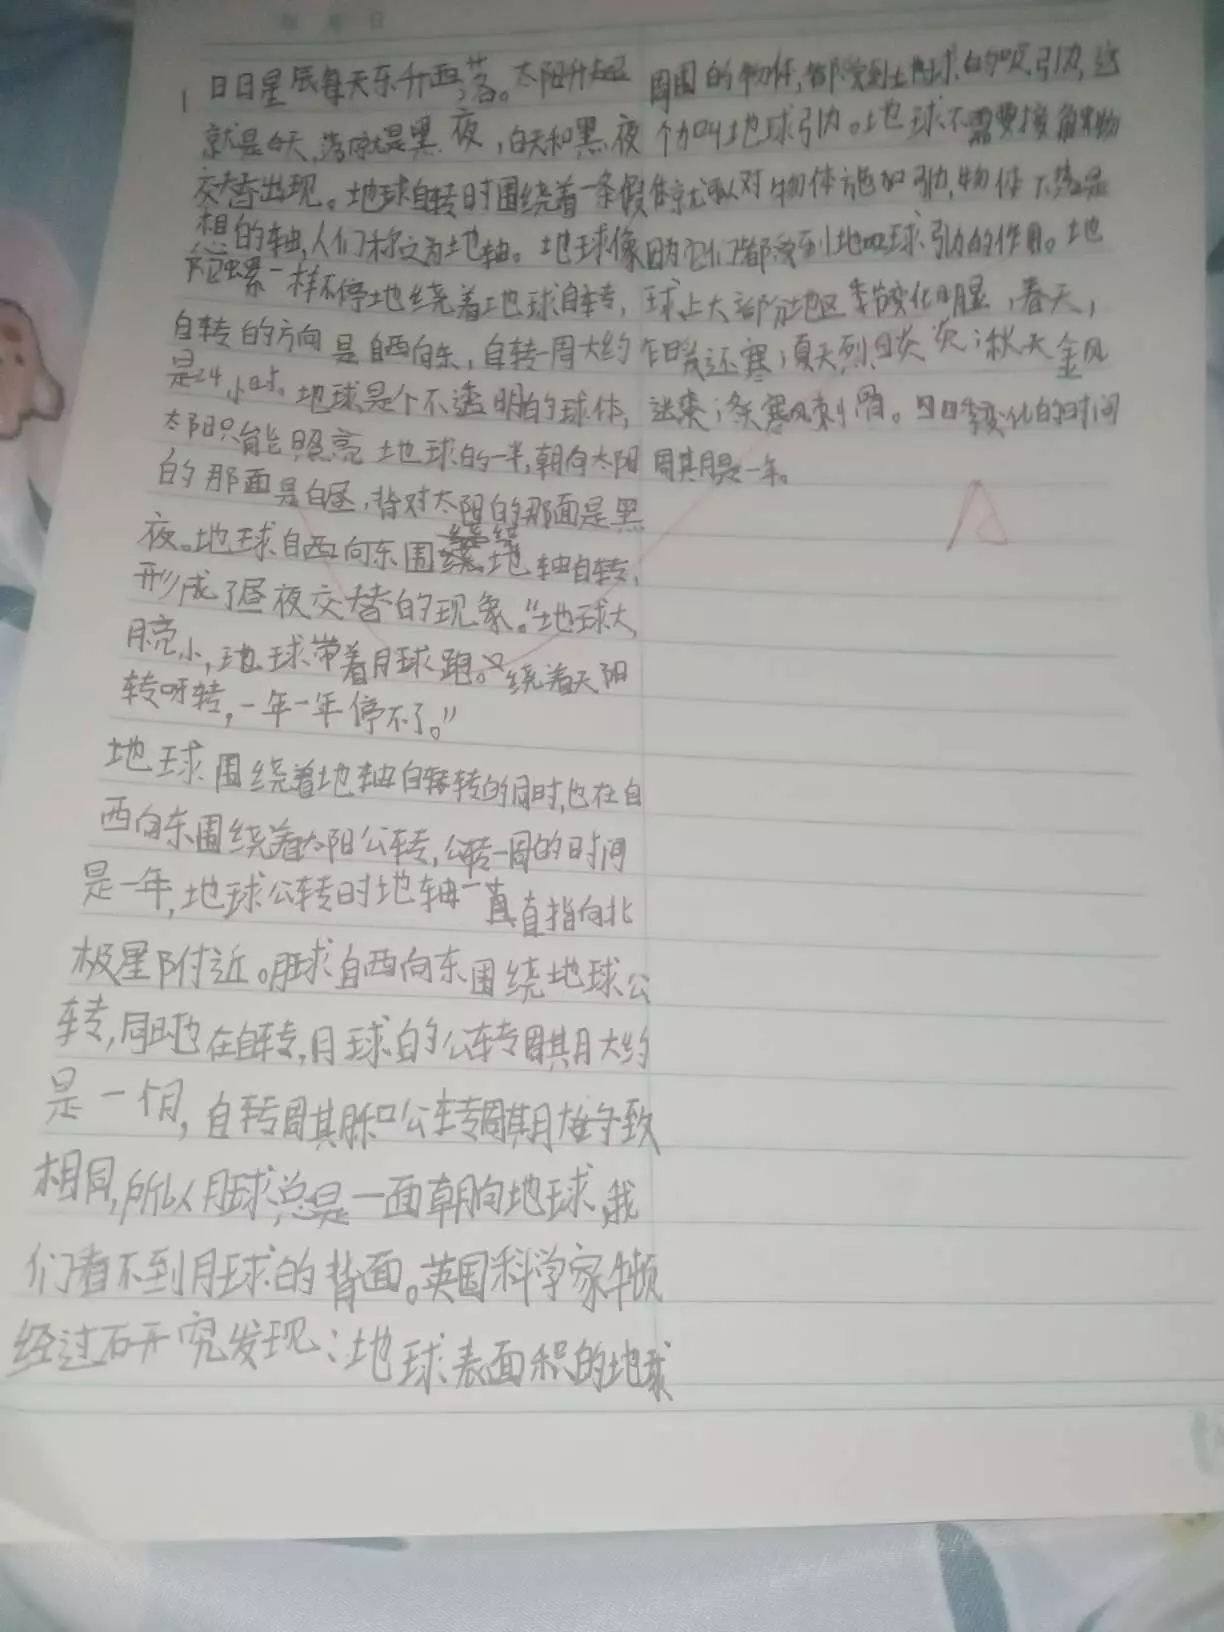 日日星辰每天东升西落。太阳升起
就是白天,落就是黑夜,白天和黑夜
交替出现。地球自转时围绕着一条假
想的轴,人们称之为地轴。地球像
陀螺一样不停地绕着地球自转,
自转的方向是自西向东,自转一周大约
是24小时。地球是个不透明的球体,
太阳只能照亮地球的一半,朝向太阳
的那面是白昼,背对太阳的那面是黑
夜。地球自西向东围绕地轴自转,
形成了昼夜交替的现象。“地球大,
月亮小,地球带着月球跑。绕着太阳
转呀转,一年一年停不了。”
地球围绕着地轴自转的同时,也在自
西向东围绕着太阳公转,公转一周的时间
是一年,地球公转时地轴一直指向北
极星附近。月球自西向东围绕地球公
转,同时也在自转,月球的公转周期大约
是一个月,自转周期和公转周期大致
相同,所以月球总是一面朝向地球,我
们看不到月球的背面。英国科学家牛顿
经过研究发现:地球表面积的地球
周围的物体,都受到地球的吸引力,这
个力叫地球引力。地球不需要接触物
体就可以对物体施加引力,物体下落是
因为它们都受到地球引力的作用。地
球上大部分地区季节变化明显,春天,
乍暖还寒;夏天烈日炎炎;秋天金风
送爽;冬寒风刺骨。四季变化的时间
周期是一年。